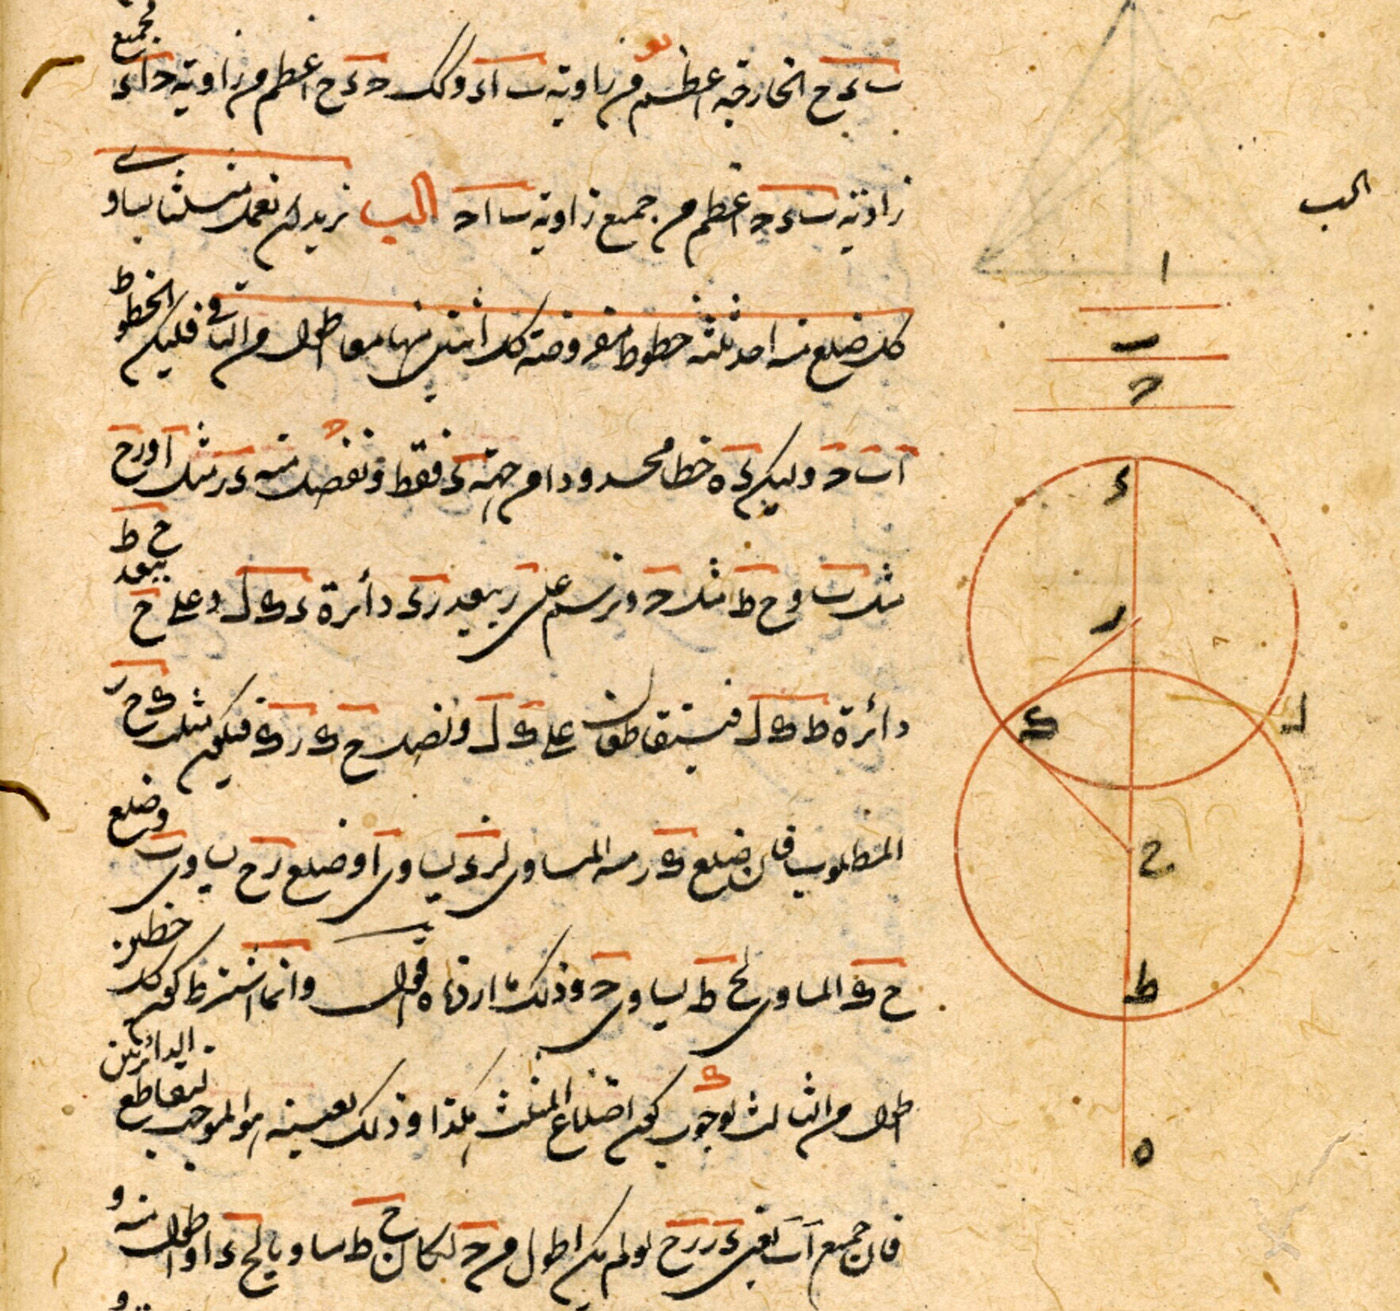 جميع
ٮ ء ح الخارجة اعظم من زاوية ٮ ا ء وكذلك ح ء ح اعظم من زاوية ح ا ء
زاوية ٮ ء ح اعظم من جميع زاوية ٮ ا ح الكب نريد ان نعمل مثلثا يساوي
كل ضلع منه احد ثلثة خطوط مفروضة كل اثنين منها معا اطول من الباقى فليكن الخطوط
ا ٮ ح وليكن ء ه خطا محدودا من جهة ء فقط ونفصل منه ء ر مثل ا و ر ح
مثل ٮ و ح ط مثل ح ونرسم على ر ببعد ر ء دائرة ء ك ل وعلى ح ببعد ح ط
دائرة ط ك ل فيتقاطعان على ك ل ونصل ح ك ر ك فيكون مثلث ك ح ر
المطلوب فان ضلع ك ر منه المساوى لر ء يساوى ا وضلع ر ح يساوى ٮ وضلع
ح ك المساوى لح ط يساوى ح وذلك ما اردناه اقول وانما اشترط كون كل خطين
اطول من الثالث لوجوب كون اضلاع المثلث هكذا وذلك بعينه هو الموجب لتقاطع الدائرتين
فان جميع ا ٮ اعنى ء ر ر ح لو لم يكن اطول من ح لكان ح ط مساويا لح ء او اطول منه و
الكب
ا
ٮ
ح
ء
ر
ك
ل
ح
ط
ه